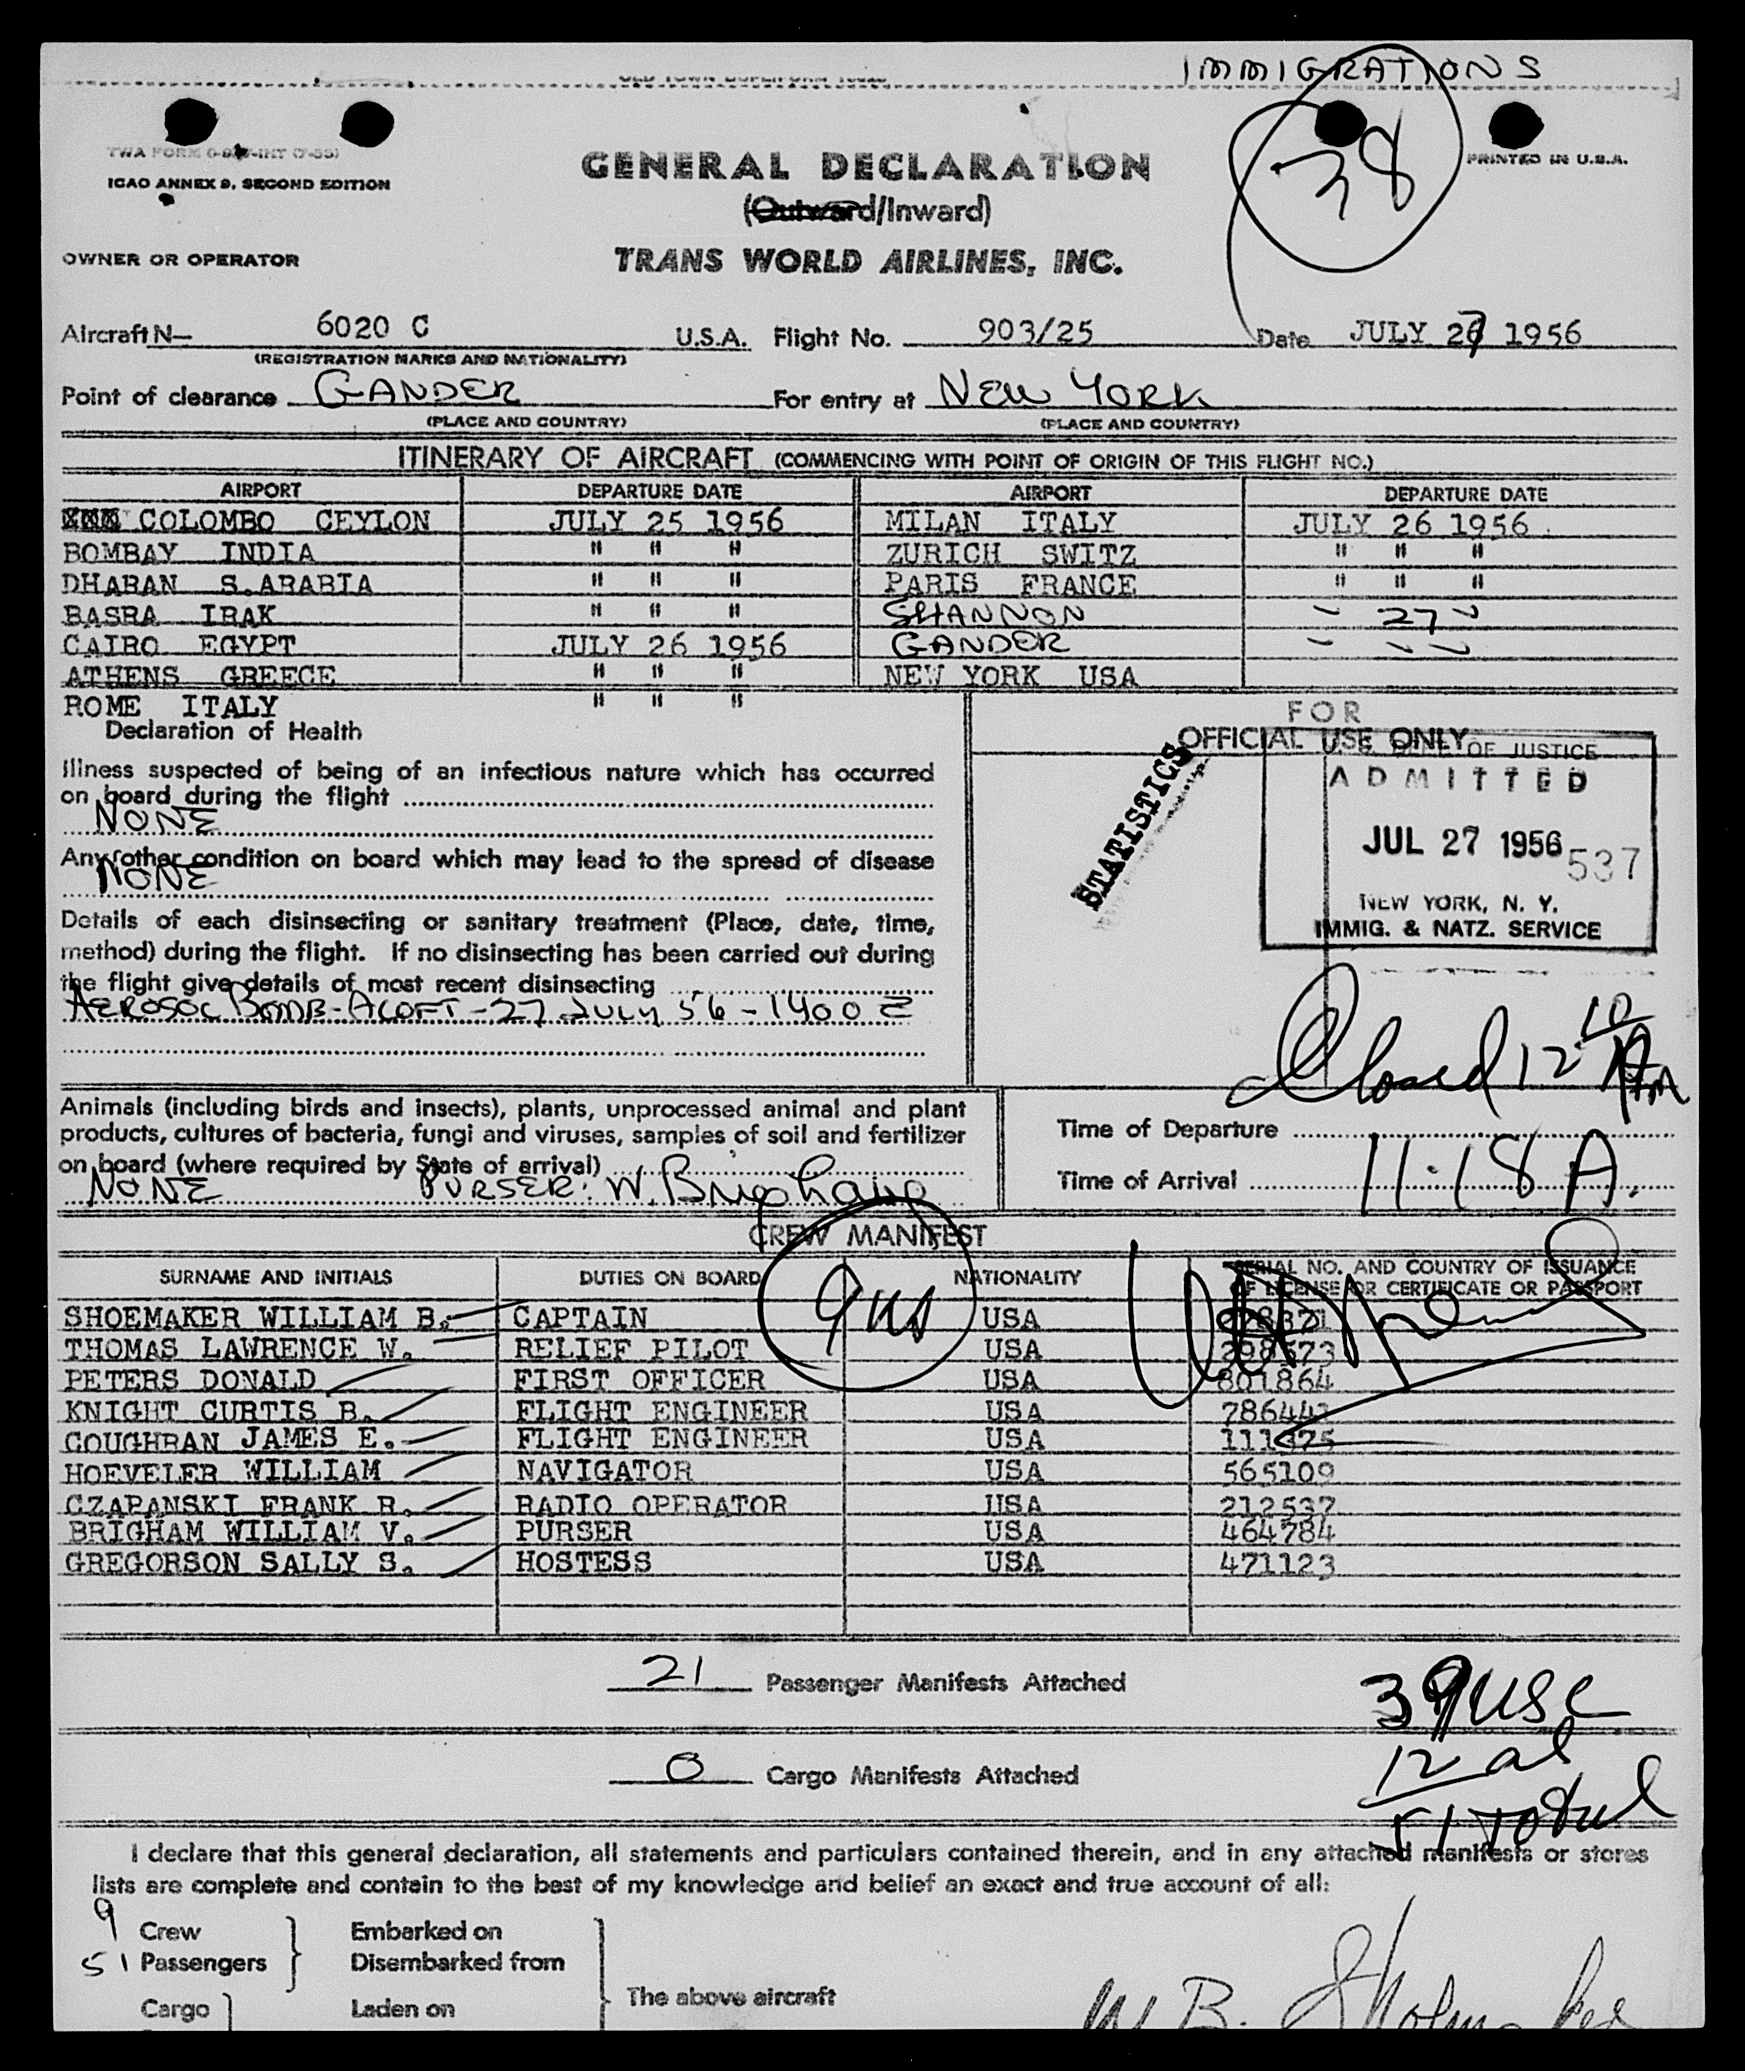 IMMIGRATIONS
38
ICAO ANNEX 9, SECOND EDITION
PRINTED IN U.S.A.
GENERAL DECLARATION
(Outward/Inward)
OWNER OR OPERATOR
TRANS WORLD AIRLINES, INC.
Aircraft N— 6020 C U.S.A. Flight No. 903/25 Date JULY 27 1956
(REGISTRATION MARKS AND NATIONALITY)
Point of clearance GANDER For entry at NEW YORK
(PLACE AND COUNTRY) (PLACE AND COUNTRY)
ITINERARY OF AIRCRAFT (COMMENCING WITH POINT OF ORIGIN OF THIS FLIGHT NO.)
AIRPORT DEPARTURE DATE AIRPORT DEPARTURE DATE
COLOMBO CEYLON JULY 25 1956 MILAN ITALY JULY 26 1956
BOMBAY INDIA " " " ZURICH SWITZ " " "
DHARAN S.ARABIA " " " PARIS FRANCE " " "
BASRA IRAK " " " SHANNON " 27 "
CAIRO EGYPT JULY 26 1956 GANDER " " "
ATHENS GREECE " " " NEW YORK USA
ROME ITALY " " "
Declaration of Health
FOR
OFFICIAL USE ONLY
OF JUSTICE
Illness suspected of being of an infectious nature which has occurred
on board during the flight
NONE
ADMITTED
JUL 27 1956 537
NEW YORK, N. Y.
IMMIG. & NATZ. SERVICE
STATISTICS
Any other condition on board which may lead to the spread of disease
NONE
Details of each disinsecting or sanitary treatment (Place, date, time,
method) during the flight. If no disinsecting has been carried out during
the flight give details of most recent disinsecting
AEROSOL BOMB-ALOFT-27 JULY 56-1400 Z
Closed 12 10 Pm
Animals (including birds and insects), plants, unprocessed animal and plant
products, cultures of bacteria, fungi and viruses, samples of soil and fertilizer
on board (where required by State of arrival)
NONE PURSER: W. Brigham
Time of Departure
Time of Arrival 11:18 A.
CREW MANIFEST
9 us
SURNAME AND INITIALS DUTIES ON BOARD NATIONALITY SERIAL NO. AND COUNTRY OF ISSUANCE
OF LICENSE OR CERTIFICATE OR PASSPORT
SHOEMAKER WILLIAM B. CAPTAIN USA
THOMAS LAWRENCE W. RELIEF PILOT USA 298573
PETERS DONALD FIRST OFFICER USA 801864
KNIGHT CURTIS B. FLIGHT ENGINEER USA 786443
COUGHRAN JAMES E. FLIGHT ENGINEER USA 111375
HOEVELER WILLIAM NAVIGATOR USA 565109
CZAPANSKI FRANK R. RADIO OPERATOR USA 212537
BRIGHAM WILLIAM V. PURSER USA 464784
GREGORSON SALLY S. HOSTESS USA 471123
21 Passenger Manifests Attached
39 USC
0 Cargo Manifests Attached
12 al
51 Total
I declare that this general declaration, all statements and particulars contained therein, and in any attached manifests or stores
lists are complete and contain to the best of my knowledge and belief an exact and true account of all:
9 Crew Embarked on
51 Passengers Disembarked from
The above aircraft
Cargo Laden on
W B. Shoemaker